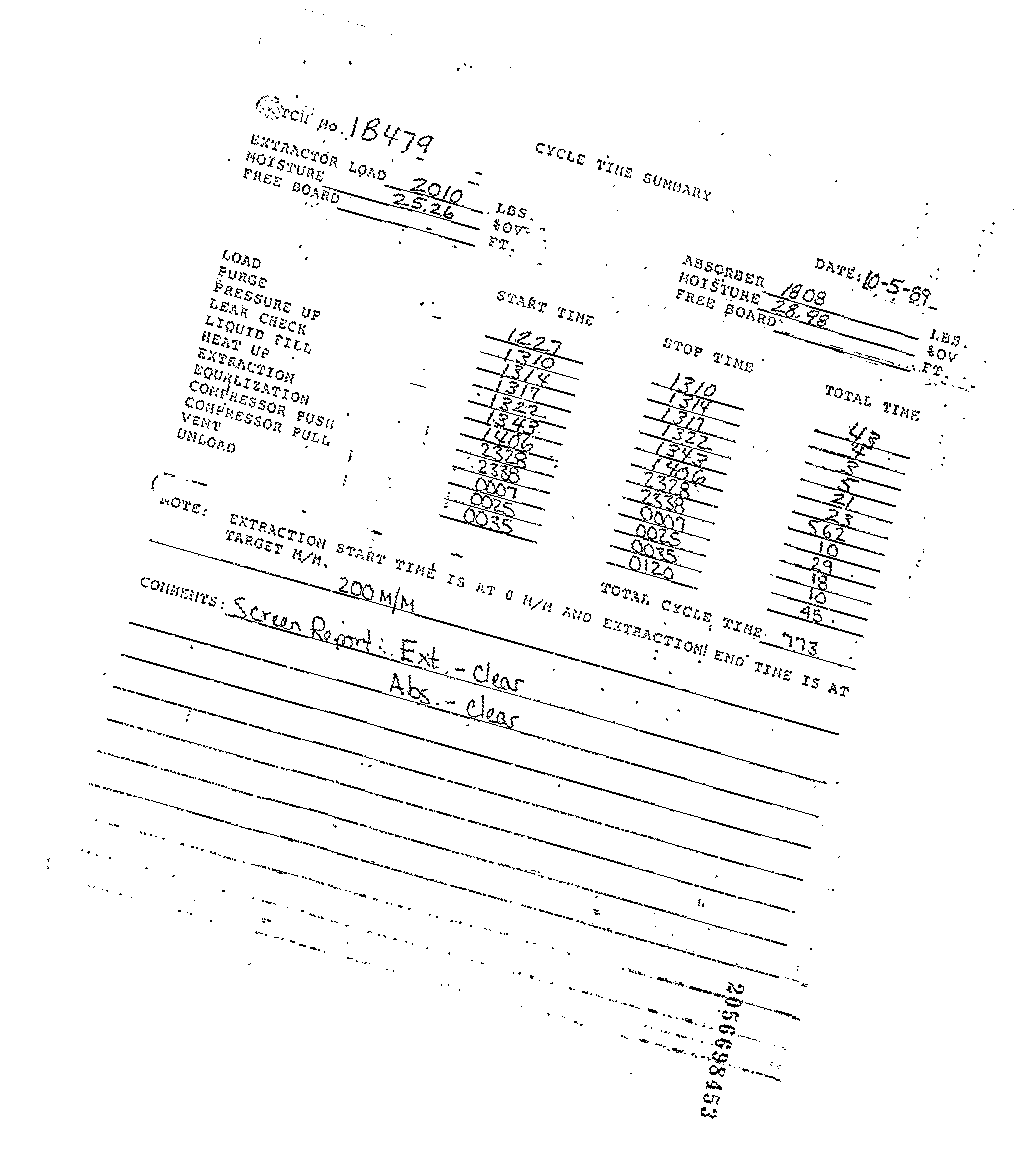 Batch no. 1B479
CYCLE TIME SUMMARY
EXTRACTOR LOAD 2010 LBS.
MOISTURE 25.26 %OV
FREE BOARD FT.
DATE: 10-5-89
ABSORBER 1808 LBS.
MOISTURE 28.98 %OV
FREE BOARD FT.
START TIME STOP TIME TOTAL TIME
LOAD 1227 1310 43
PURGE 1310 1314 4
PRESSURE UP 1314 1317 3
LEAK CHECK 1317 1322 5
LIQUID FILL 1322 1343 21
HEAT UP 1343 1406 23
EXTRACTION 1406 2328 562
EQUALIZATION 2328 2338 10
COMPRESSOR PUSH 2338 0007 29
COMPRESSOR PULL 0007 0025 18
VENT 0025 0035 10
UNLOAD 0035 0120 45
TOTAL CYCLE TIME 773
NOTE: EXTRACTION START TIME IS AT 0 M/M AND EXTRACTION END TIME IS AT
TARGET M/M.
200 M/M
COMMENTS: Screen Report: Ext. - clear
Abs. - clear
2056698453